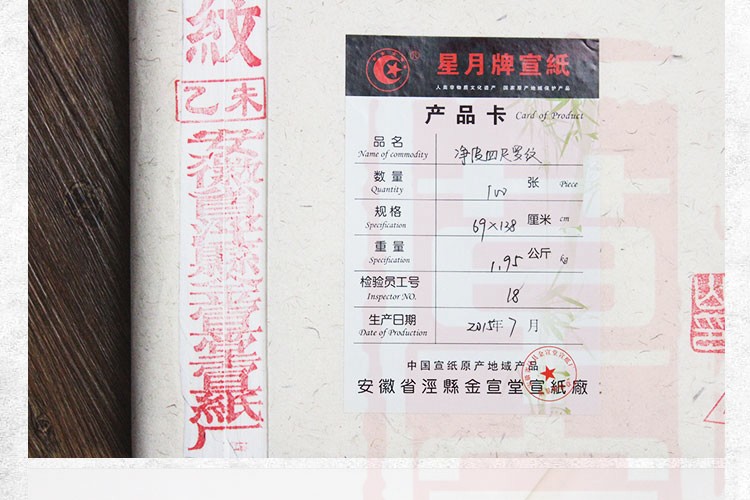 紋
乙未
安徽省涇縣金宣堂宣紙厂
星月牌宣紙
人类非物质文化遗产 国家原产地域保护产品
产品卡 Card of Product
品名 净皮四尺罗纹
Name of commodity
数量 100 张 Piece
Quantity
规格 69×138 厘米 cm
Specification
重量 1.95 公斤 kg
Specification
检验员工号 18
Inspector NO.
生产日期 2015年7月
Date of Production
中国宣纸原产地域产品
安徽省涇縣金宣堂宣紙廠